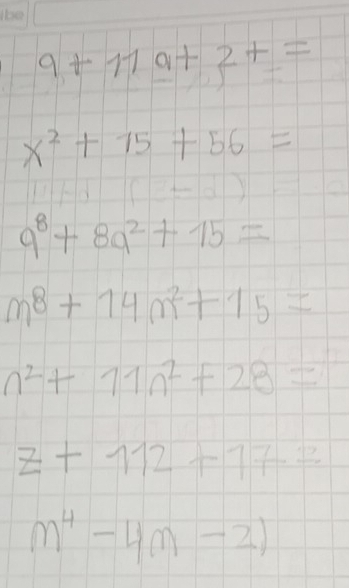 a + 11a + 2 + =
x² + 15 + 56 =
a⁸ + 8a² + 15 =
m⁸ + 14m² + 15 =
n² + 11n² + 28 =
z + 112 + 17 =
m⁴ - 4m - 2)